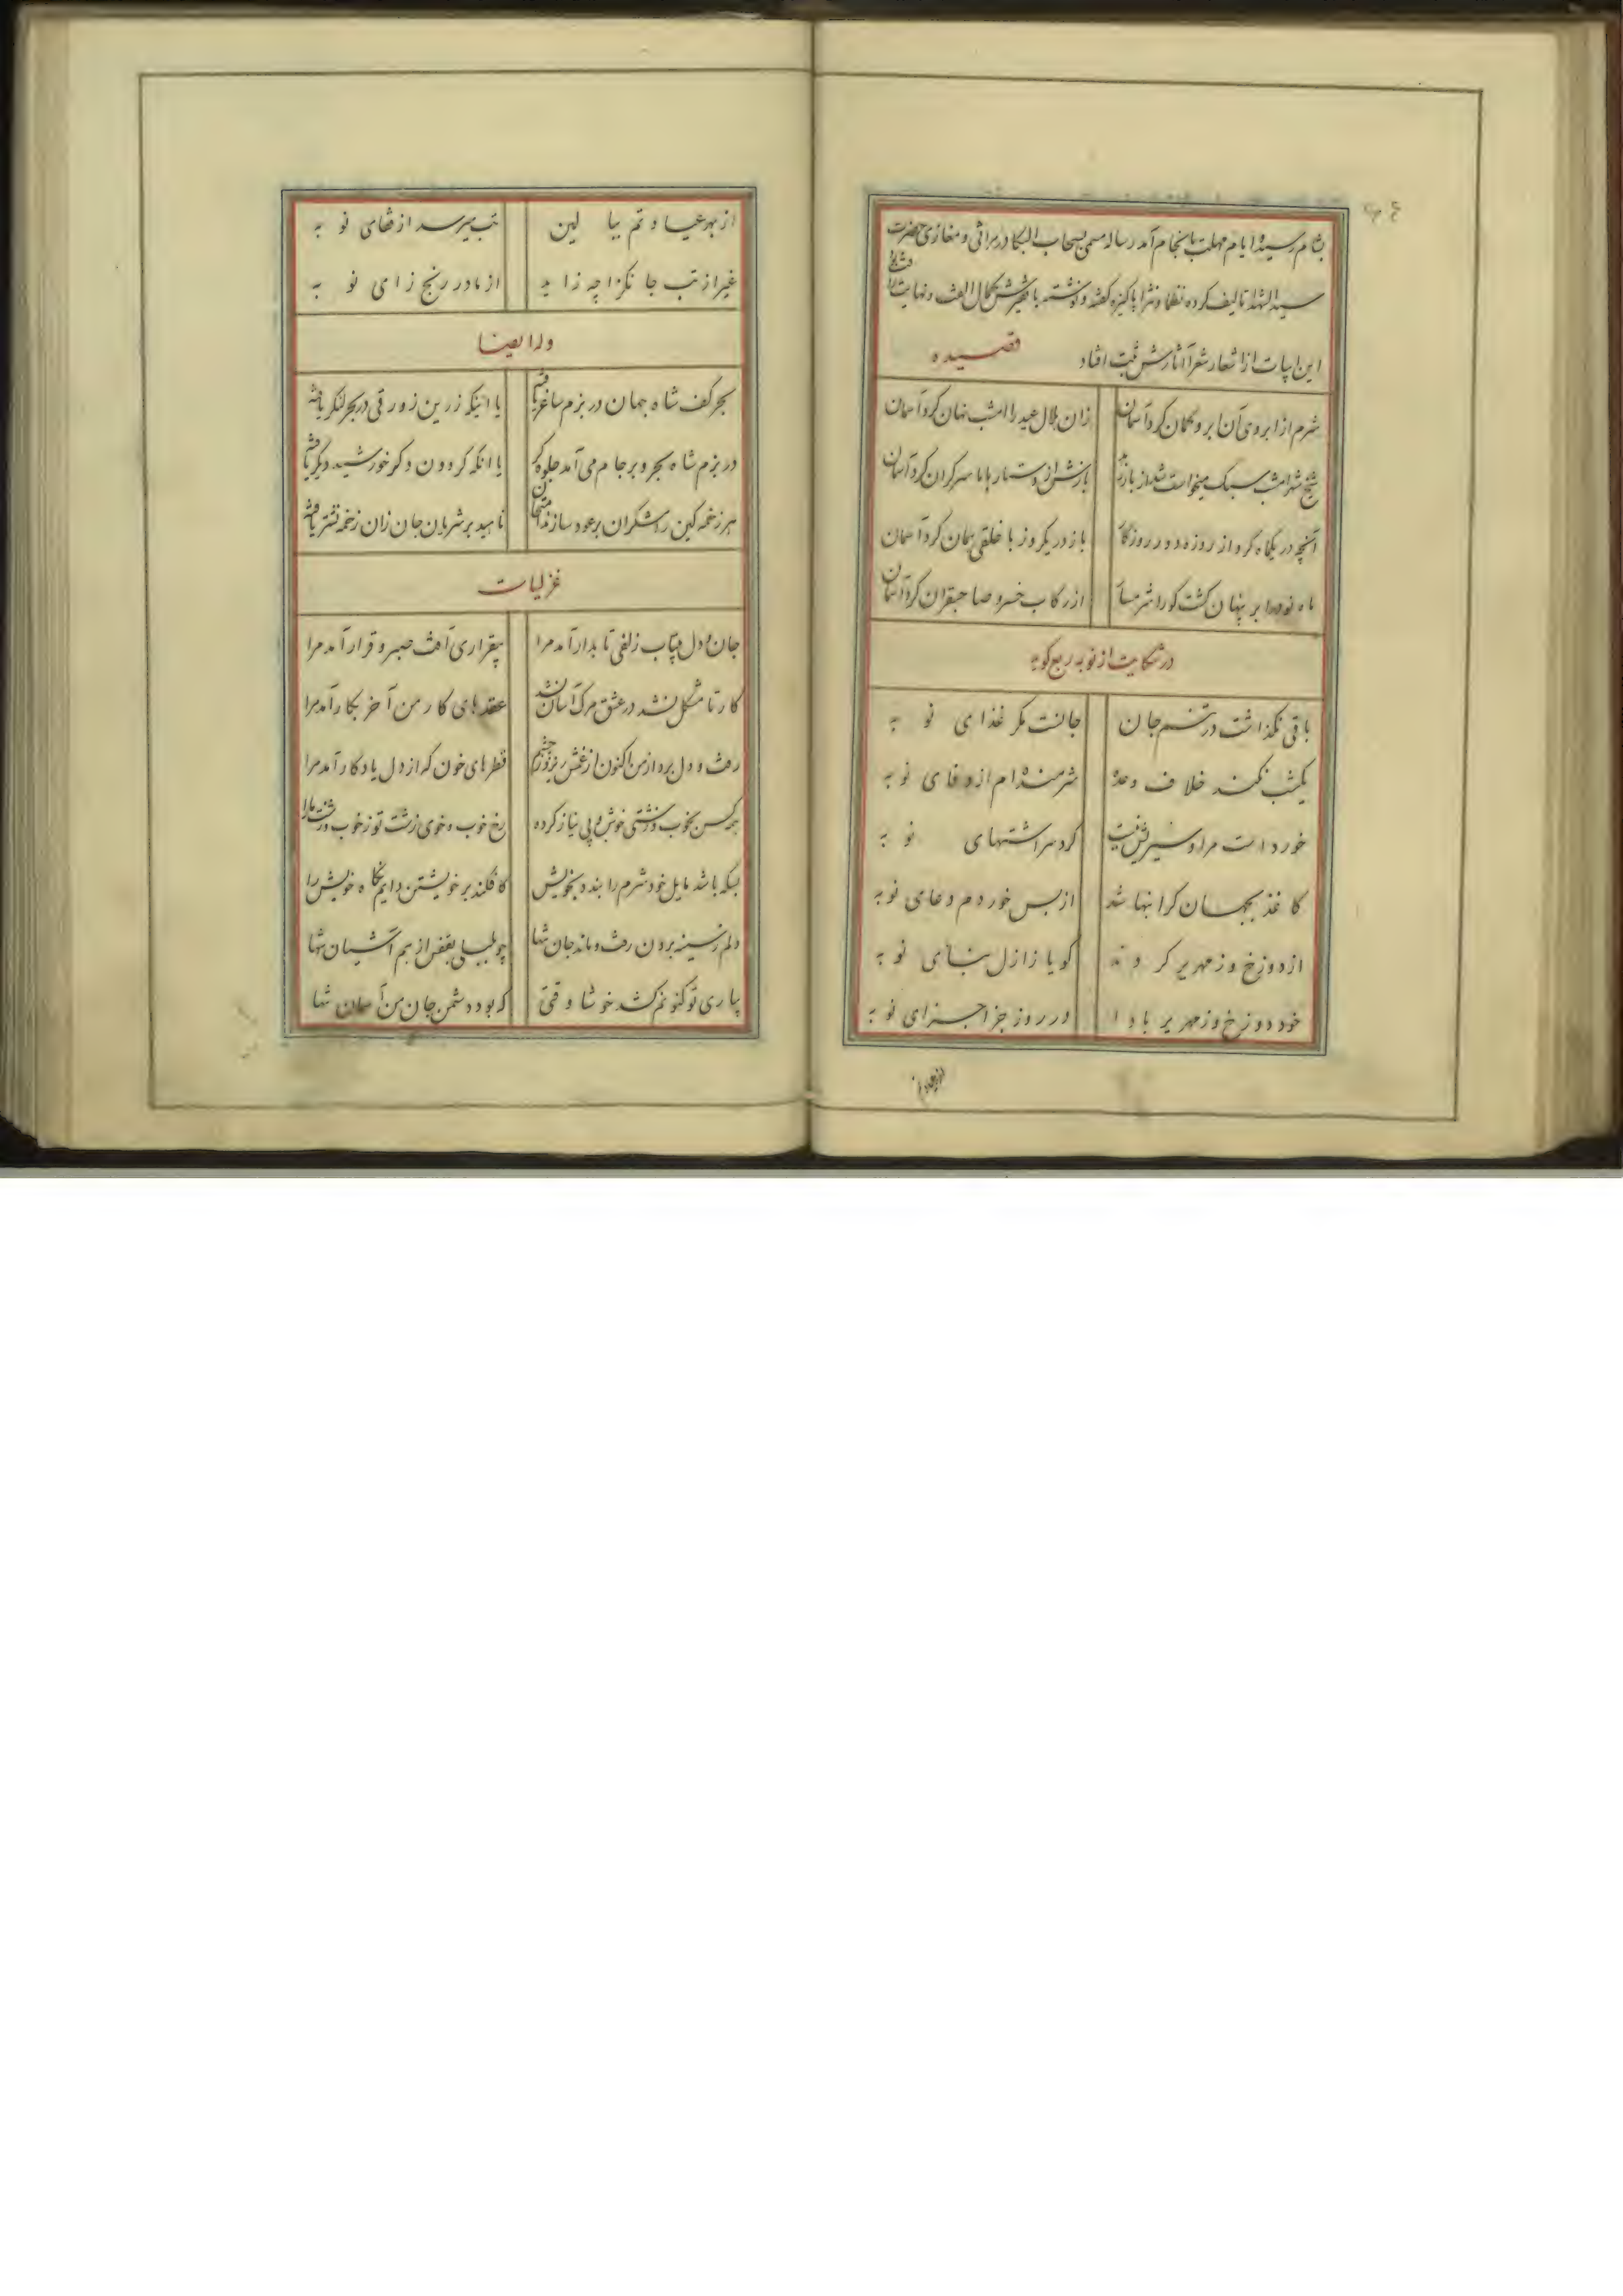 بشام رسیده ایام مهلت بانجام آمد رساله مسمی بسحاب البکا در مراثی و مغازی حضرت
سید الشهدا تالیف کرده نظما و نثرا پاکیزه گفته و نوشته با فقیرش کمال الفت و نهایت
این ابیات از اشعار شعرا آثارش ثبت افتاد قصیده
شرم از ابروی آن ابرو کمان کرد آسمان زان هلال عید را امشب نهان کرد آسمان
شیخ شهر امشب سبک میخواست باز سرکران کرد آسمان
آنچه در یکماه کرد از روزه در روزگار باز در یکروز با خلقی همان کرد آسمان
ماه نو در ابر پنهان کشت کورا شرمسار از رکاب خسرو صاحبقران کرد آسمان
در شکایت از نوبه ربع کوید
باقی نکذاشت در تنم جان جانست مکر غذای نوبه
یکشب نکند خلاف وعده شرمنده ام از وفای نوبه
خورد است مرا و سیر نیست کرد سر اشتهای نوبه
کاغذ بجهان کرانبها شد از بس خوردم دعای نوبه
از دوزخ و زمهریر کردند کویا ز ازل بنای نوبه
خود دوزخ و زمهریر بادا در روز جزا جزای نوبه
از بهر عیادتم ببالین تب میرسد از قفای نوبه
غیر از تب جانکزا چه زاید از مادر رنج زای نوبه
وله ایضا
بحر کف شاه جهان در بزم ساغر یافته یا اینکه زرین زورقی در بحر لنکر یافته
در بزم شاه بحر و بر جام می آمد جلوه کر یا انکه کردون دکر خورشید دیکر یافته
هر زخمه کین رامشکران بر عود سازند امتحان ناهید بر شریان جان زان زخمه نشتر یافته
غزلیات
جان و دل بیتاب زلفی تابدار آمد مرا بیقراری آفت صبر و قرار آمد مرا
کار تا مشکل نشد در عشق مرک آسان نشد عقدهای کار من آخر بکار آمد مرا
رفت و دل برد از من اکنون از غمش ریزد ز چشم قطرهای خون که از دل یادکار آمد مرا
همه کس بخوب و زشتی خوش و بی نیاز کرده رخ خوب و خوی زشت تو ز خوب و زشت ما را
بسکه باشد مایل خود شرم را بنده بخویش کافکند بر خویشتن دایم نکاه خویش را
دلم ز سینه برون رفت و ماند جان تنها چو بلبلی بقفس از هم آشیان تنها
بیاری تو کنونم کشد خوشا وقتی که بود دشمن جان من آسمان تنها